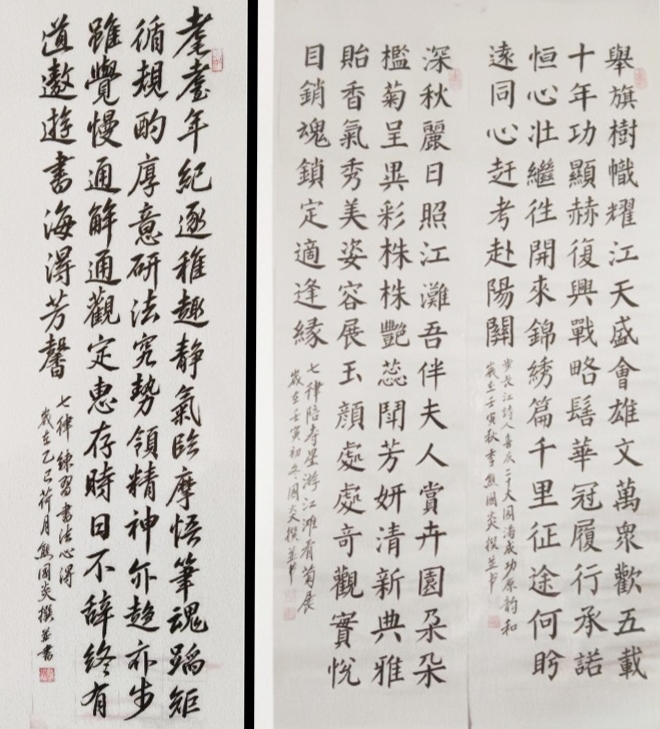 耄耋年紀逐稚趣靜氣臨摩悟筆魂蹈矩
循規酌厚意研法究勢領精神亦趋亦步
雖覺慢通解通觀定惠存時日不辭終有
道遨遊書海淂芳馨
七律 練習書法心得
歲在乙巳荷月熊國炎撰並書
舉旗樹幟耀江天盛會雄文萬衆歡五載
十年功顯赫復興戰略髻華冠履行承諾
恒心壯繼徃開來錦綉篇千里征途何盻
遠同心赶考赴陽關
步長江詩人喜慶二十大圓滿成功原韵和
歲在壬寅秋季熊國炎撰並书
深秋麗日照江灘吾伴夫人賞卉園朵朵
檻菊呈異彩株株艷蕊鬪芳妍清新典雅
貽香氣秀美姿容展玉顔處處奇觀實悅
目銷魂鎖定適逢緣
七律陪壽星游江灘看菊展
歲在壬寅初冬國炎撰並书